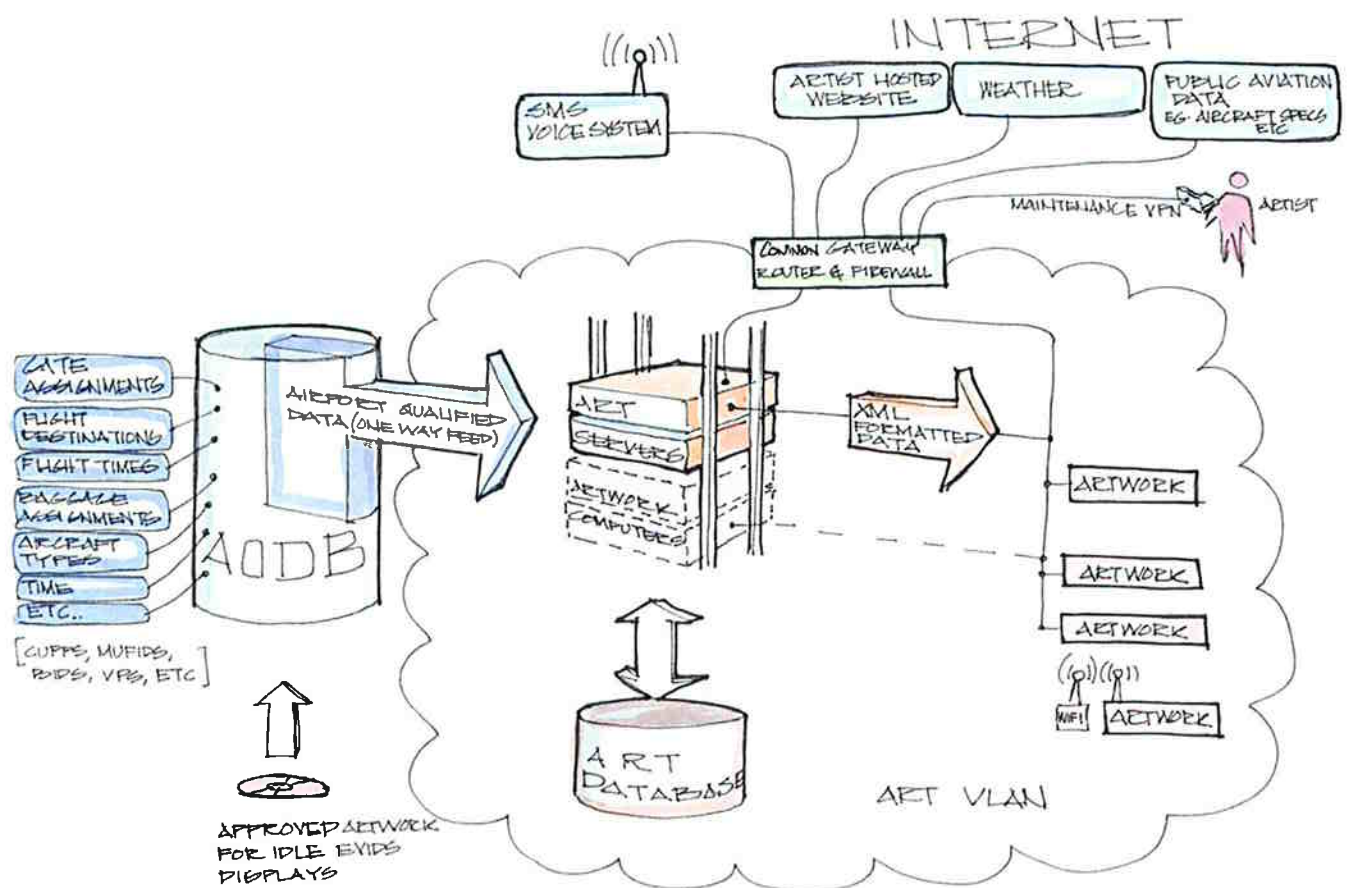 INTERNET
SMS
VOICE SYSTEM
ARTIST HOSTED
WEBSITE
WEATHER
PUBLIC AVIATION
DATA
EG. AIRCRAFT SPECS
ETC
MAINTENANCE VPN
ARTIST
COMMON GATEWAY
ROUTER & FIREWALL
GATE
ASSIGNMENTS
FLIGHT
DESTINATIONS
FLIGHT TIMES
BAGGAGE
ASSIGNMENTS
AIRCRAFT
TYPES
TIME
ETC..
[CUPPS, MUFIDS,
BIDS, VPS, ETC]
AODB
AIRPORT QUALIFIED
DATA (ONE WAY FEED)
ART
SERVERS
ARTWORK
COMPUTERS
XML
FORMATTED
DATA
ARTWORK
ARTWORK
ARTWORK
WIFI
ARTWORK
ART
DATABASE
ART VLAN
APPROVED ARTWORK
FOR IDLE EVIDS
DISPLAYS